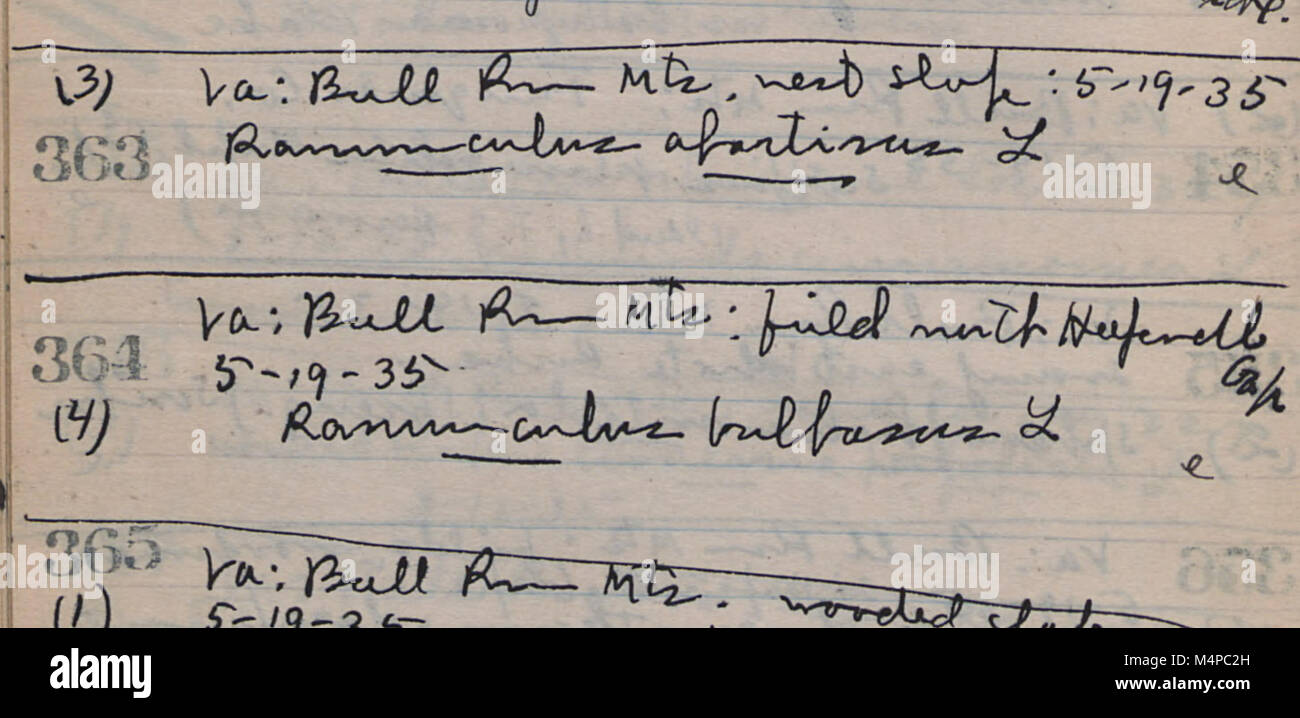 (3) Va: Bull Run Mts. west slope: 5-19-35
363 Ranunculus abortivus L
e
Va: Bull Run Mts: field north Hopewell
364 5-19-35 Gap
(4) Ranunculus bulbosus L
e
365 Va: Bull Run Mts. wooded slope
(1) 5-19-35
alamy
Image ID: M4PC2H
www.alamy.com